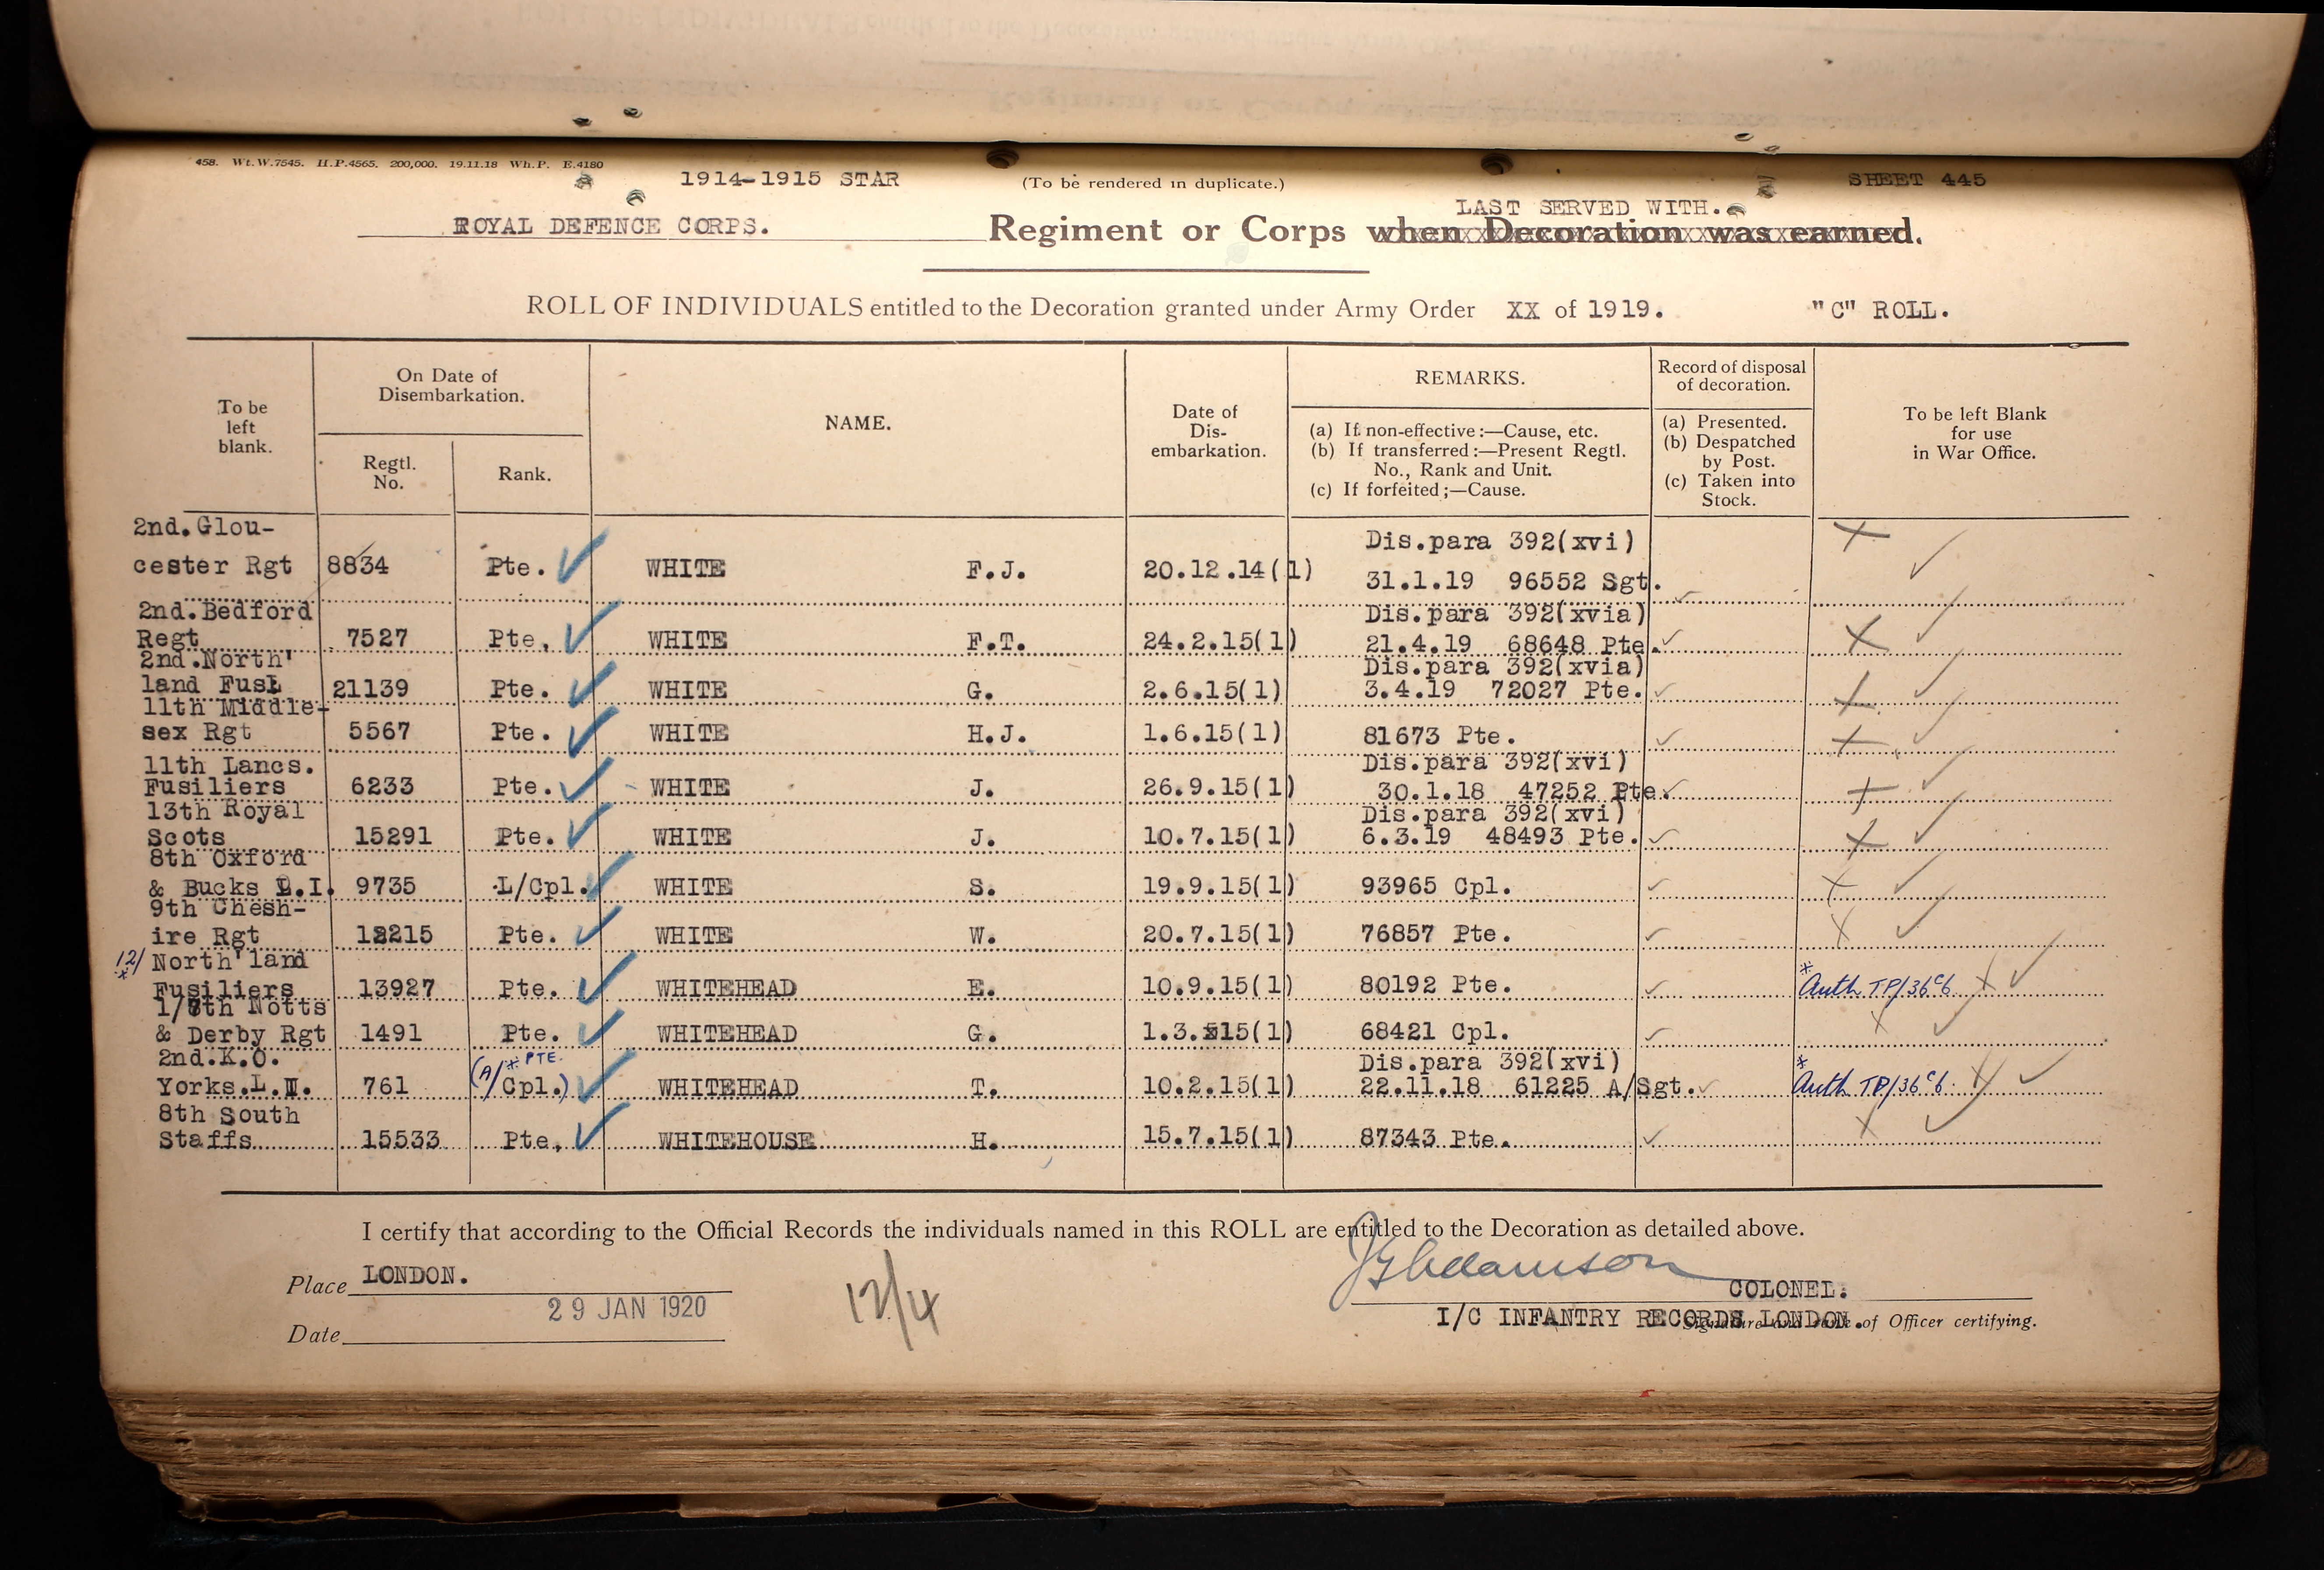 458. Wt.W.7545. H.P.4565. 200,000. 19.11.18 Wh.P. E.4180
1914-1915 STAR (To be rendered in duplicate.) SHEET 445
LAST SERVED WITH.
ROYAL DEFENCE CORPS. Regiment or Corps when Decoration was earned.
ROLL OF INDIVIDUALS entitled to the Decoration granted under Army Order XX of 1919. "C" ROLL.
To be left blank.
On Date of Disembarkation.
Regtl. No.
Rank.
NAME.
Date of Dis-embarkation.
REMARKS.
(a) If non-effective:—Cause, etc.
(b) If transferred:—Present Regtl. No., Rank and Unit.
(c) If forfeited;—Cause.
Record of disposal of decoration.
(a) Presented.
(b) Despatched by Post.
(c) Taken into Stock.
To be left Blank for use in War Office.
2nd.Glou- Dis.para 392(xvi)
cester Rgt 8834 Pte. WHITE F.J. 20.12.14(1) 31.1.19 96552 Sgt.
2nd.Bedford Dis.para 392(xvia)
Regt 7527 Pte. WHITE F.T. 24.2.15(1) 21.4.19 68648 Pte.
2nd.North' Dis.para 392(xvia)
land Fusl 21139 Pte. WHITE G. 2.6.15(1) 3.4.19 72027 Pte.
11th Middle-
sex Rgt 5567 Pte. WHITE H.J. 1.6.15(1) 81673 Pte.
11th Lancs. Dis.para 392(xvi)
Fusiliers 6233 Pte. WHITE J. 26.9.15(1) 30.1.18 47252 Pte.
13th Royal Dis.para 392(xvi)
Scots 15291 Pte. WHITE J. 10.7.15(1) 6.3.19 48493 Pte.
8th Oxford
& Bucks L.I. 9735 L/Cpl. WHITE S. 19.9.15(1) 93965 Cpl.
9th Chesh-
ire Rgt 12215 Pte. WHITE W. 20.7.15(1) 76857 Pte.
12/ North'land
Fusiliers 13927 Pte. WHITEHEAD E. 10.9.15(1) 80192 Pte. * Auth TP/36 c6.
Notts
& Derby Rgt 1491 Pte. WHITEHEAD G. 1.3.15(1) 68421 Cpl.
2nd.K.O. * PTE. Dis.para 392(xvi)
Yorks.L.I. 761 (A/Cpl.) WHITEHEAD T. 10.2.15(1) 22.11.18 61225 A/Sgt. * Auth TP/36 c6.
8th South
Staffs 15533 Pte. WHITEHOUSE H. 15.7.15(1) 87343 Pte.
I certify that according to the Official Records the individuals named in this ROLL are entitled to the Decoration as detailed above.
Place LONDON.
Date 29 JAN 1920
12/4
JG Adamson
COLONEL.
I/C INFANTRY RECORDS LONDON.
Signature and rank of Officer certifying.